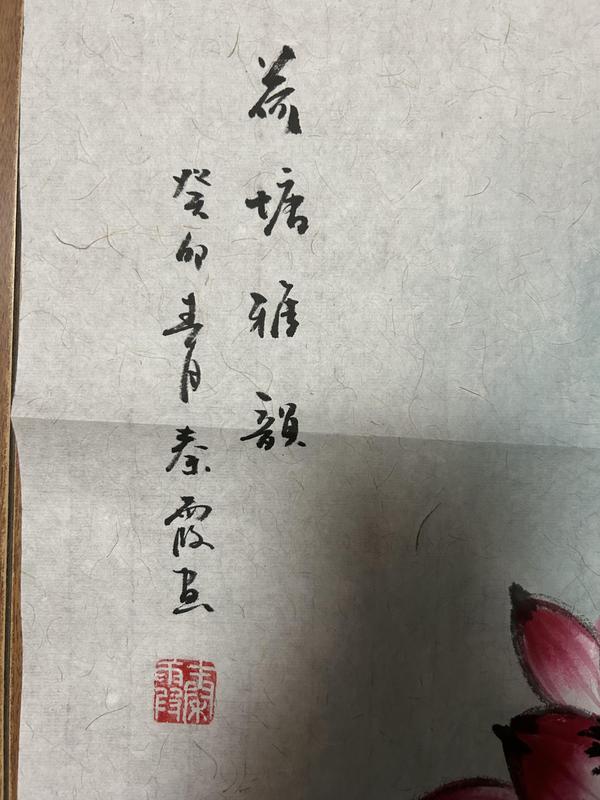 荷塘雅韻
癸卯春月秦霞畫